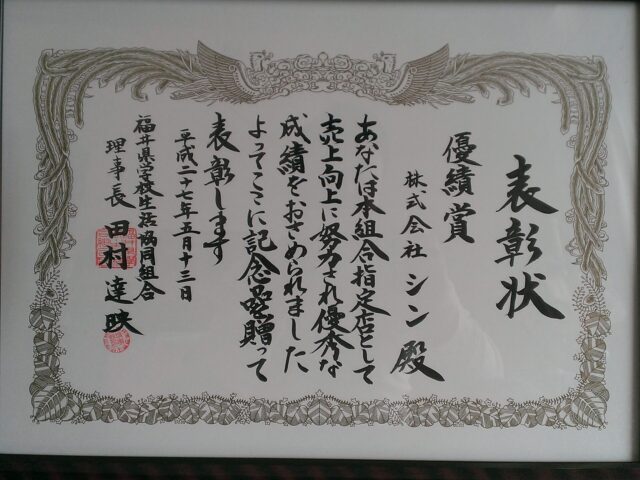 表彰状
優績賞
株式会社 シン 殿
あなたは本組合指定店として
売上向上に努力され優秀な
成績をおさめられました
よってここに記念品を贈って
表彰します
平成二十七年五月十三日
福井県学校生活協同組合
理事長 田村 達映